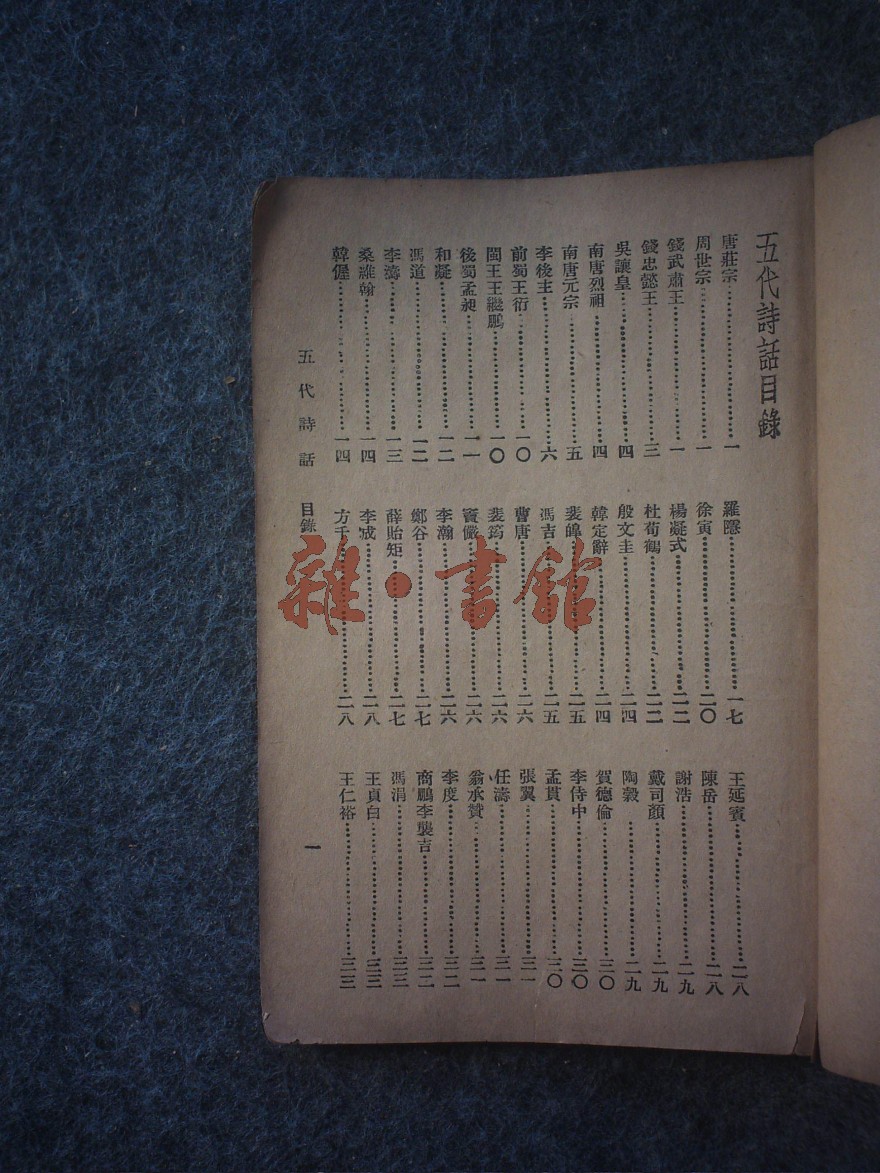 五代詩話目錄
唐莊宗⋯⋯一
周世宗⋯⋯一
錢武肅王⋯⋯一
錢忠懿王⋯⋯三
吳讓皇⋯⋯四
南唐烈祖⋯⋯四
南唐元宗⋯⋯五
李後主⋯⋯六
前蜀王衍⋯⋯一〇
閩王王繼鵬⋯⋯一〇
後蜀孟昶⋯⋯一一
和凝⋯⋯一二
馮道⋯⋯一二
李濤⋯⋯一三
桑維翰⋯⋯一四
韓偓⋯⋯一四
羅隱⋯⋯一七
徐寅⋯⋯二〇
楊凝式⋯⋯二二
杜荀鶴⋯⋯二二
殷文圭⋯⋯二四
韓定辭⋯⋯二四
裴皞⋯⋯二五
馮吉⋯⋯二五
曹唐⋯⋯二六
裴筠⋯⋯二六
竇儼⋯⋯二六
李瀚⋯⋯二六
鄭谷⋯⋯二七
薛貽矩⋯⋯二七
李⋯⋯二八
方干⋯⋯二八
王延賓⋯⋯二八
陳岳⋯⋯二八
謝浩⋯⋯二九
戴司顏⋯⋯二九
陶穀⋯⋯二九
賀德倫⋯⋯三〇
李侍中⋯⋯三〇
孟貫⋯⋯三〇
張翼⋯⋯三一
任濤⋯⋯三一
翁承贊⋯⋯三一
李度⋯⋯三二
商鵬李襲吉⋯⋯三二
馮涓⋯⋯三三
王貞白⋯⋯三三
王仁裕⋯⋯三三
五代詩話 目錄 一
雜·書館